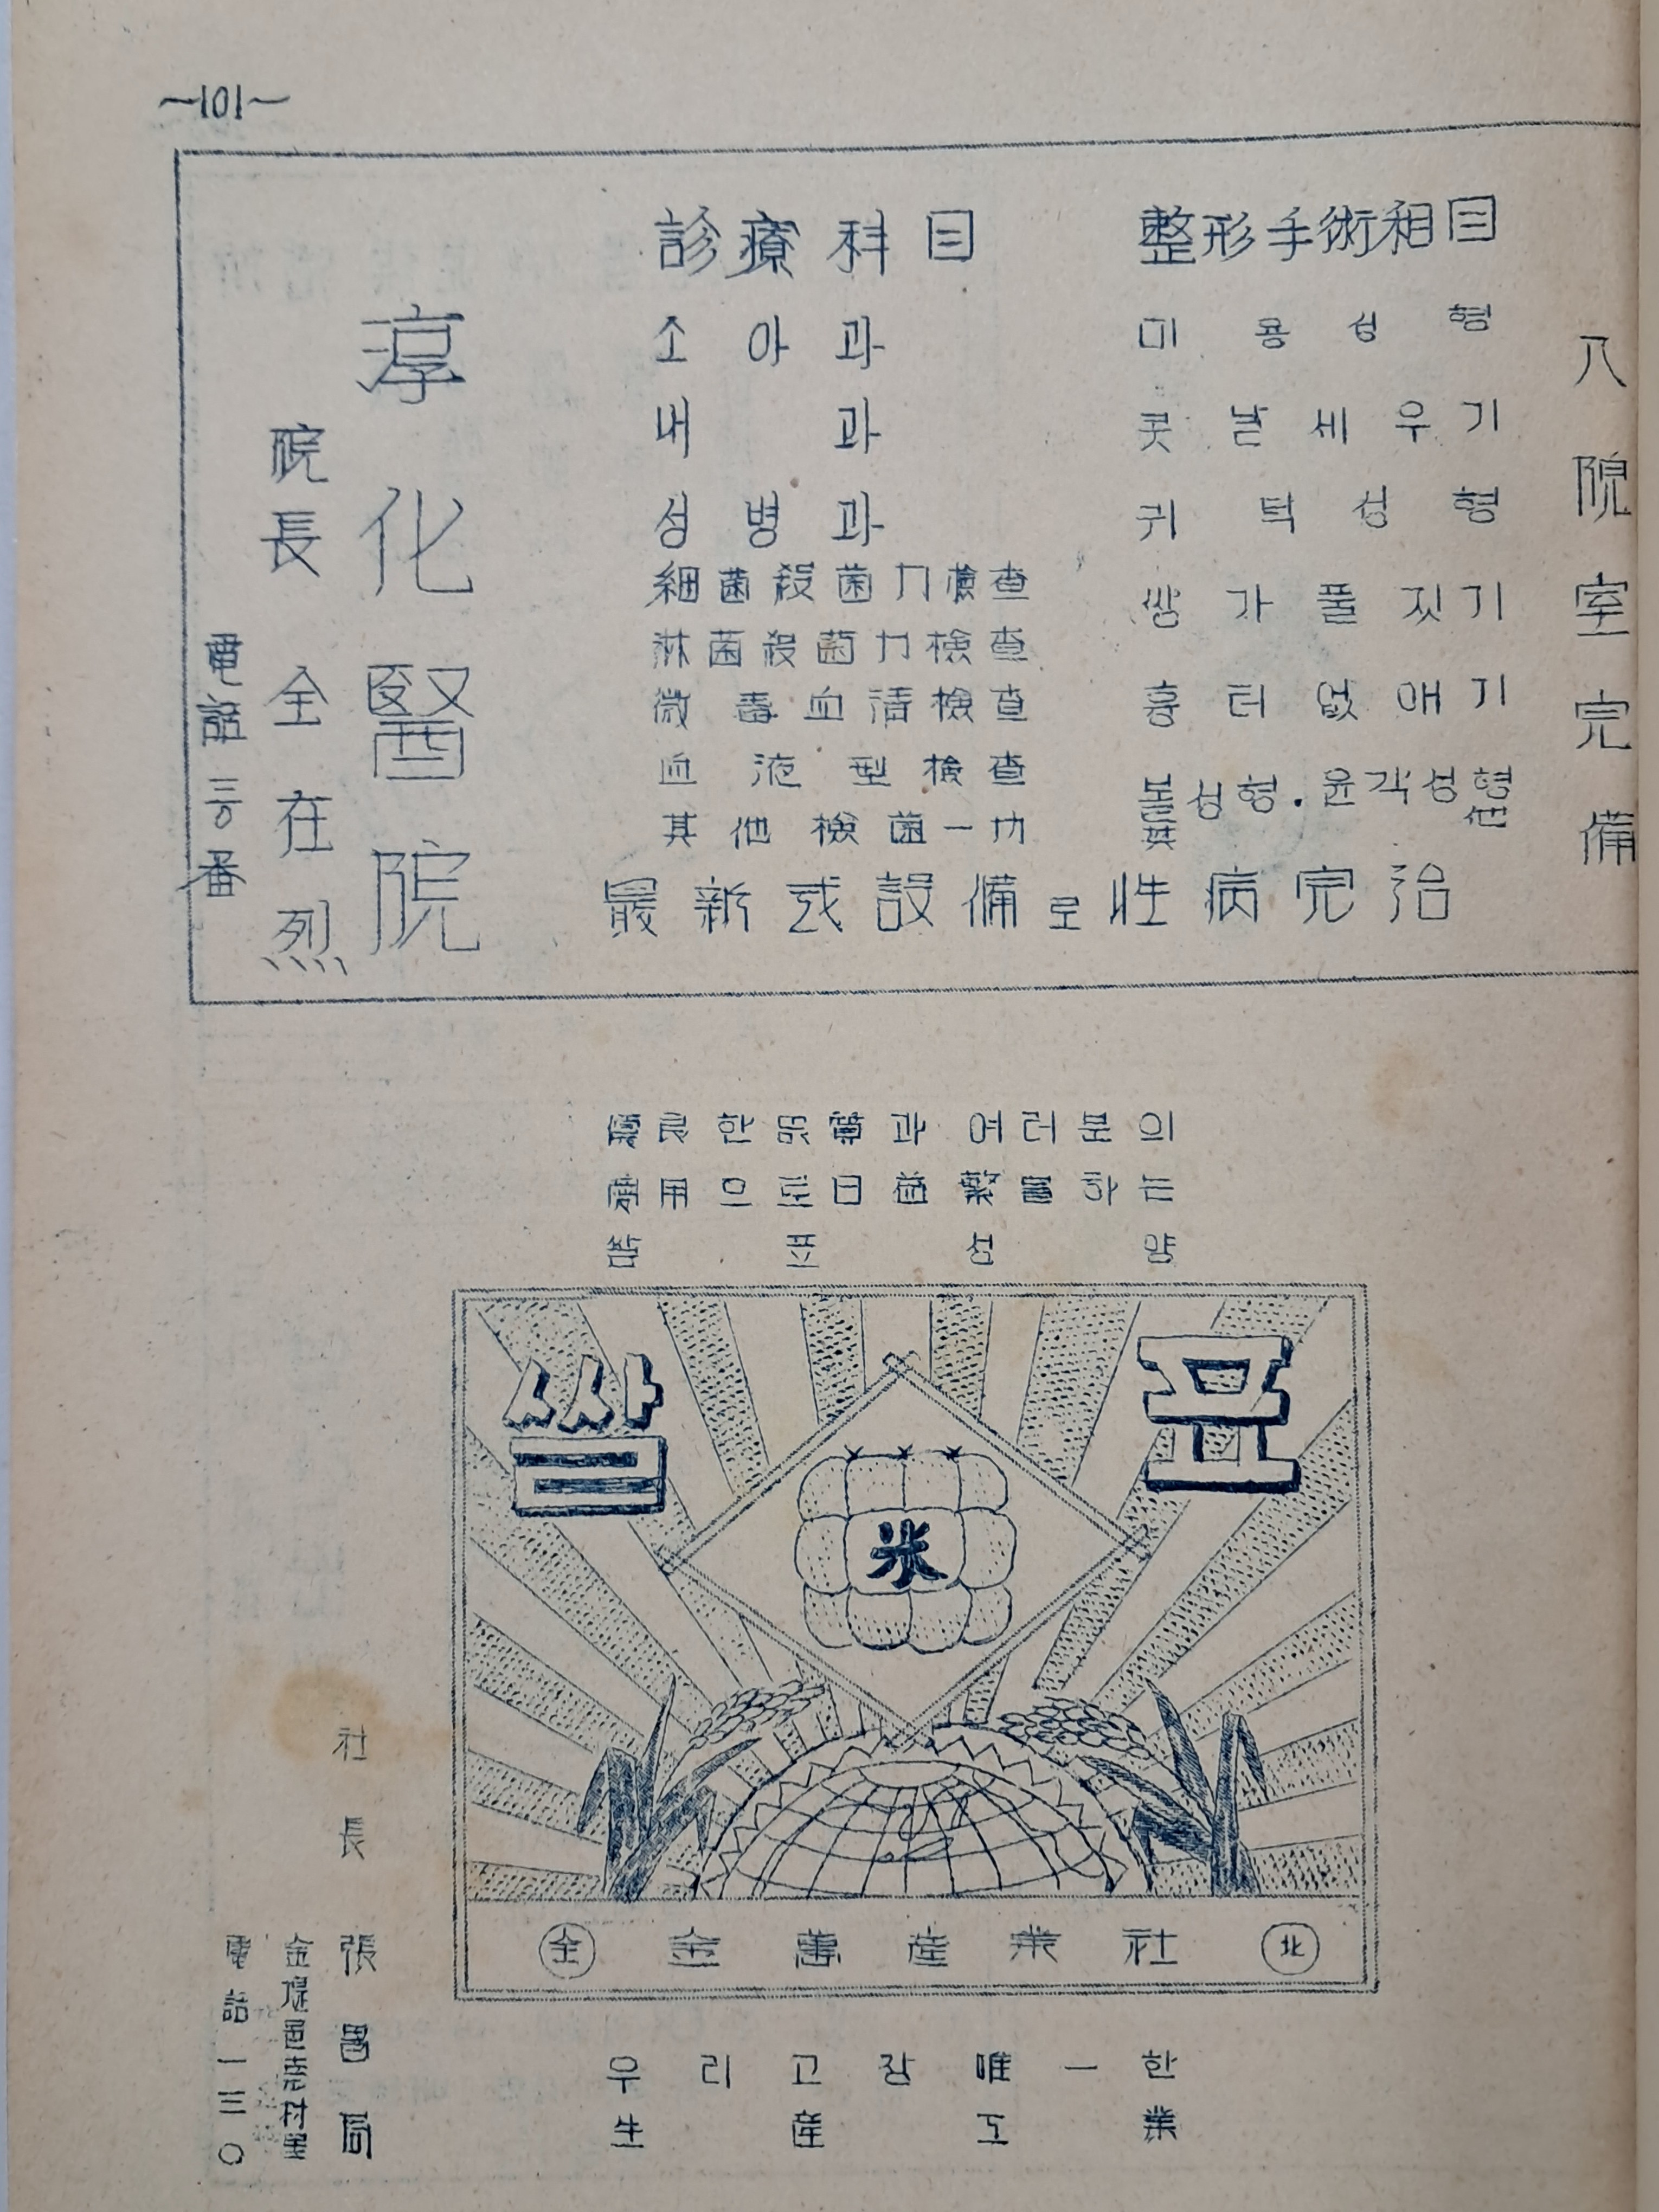 ~101~
入院室完備
整形手術科目
미용성형
콧날세우기
귀턱성형
쌍가풀짓기
흉터없애기
볼성형. 윤곽성형
其他
診療科目
소아과
내과
성병과
細菌殺菌力檢査
淋菌殺菌力檢査
微毒血淸檢査
血液型檢査
其他檢菌一切
最新式設備로性病完治
淳化醫院
院長 全在烈
電話三〇番
優良한品質과 여러분의
愛用으로日益繁昌하는
쌀표성냥
쌀표
米
全 金萬産業社 北
우리고장唯一한
生産工業
社長 張昌局
金堤邑堯村里
電話一三〇